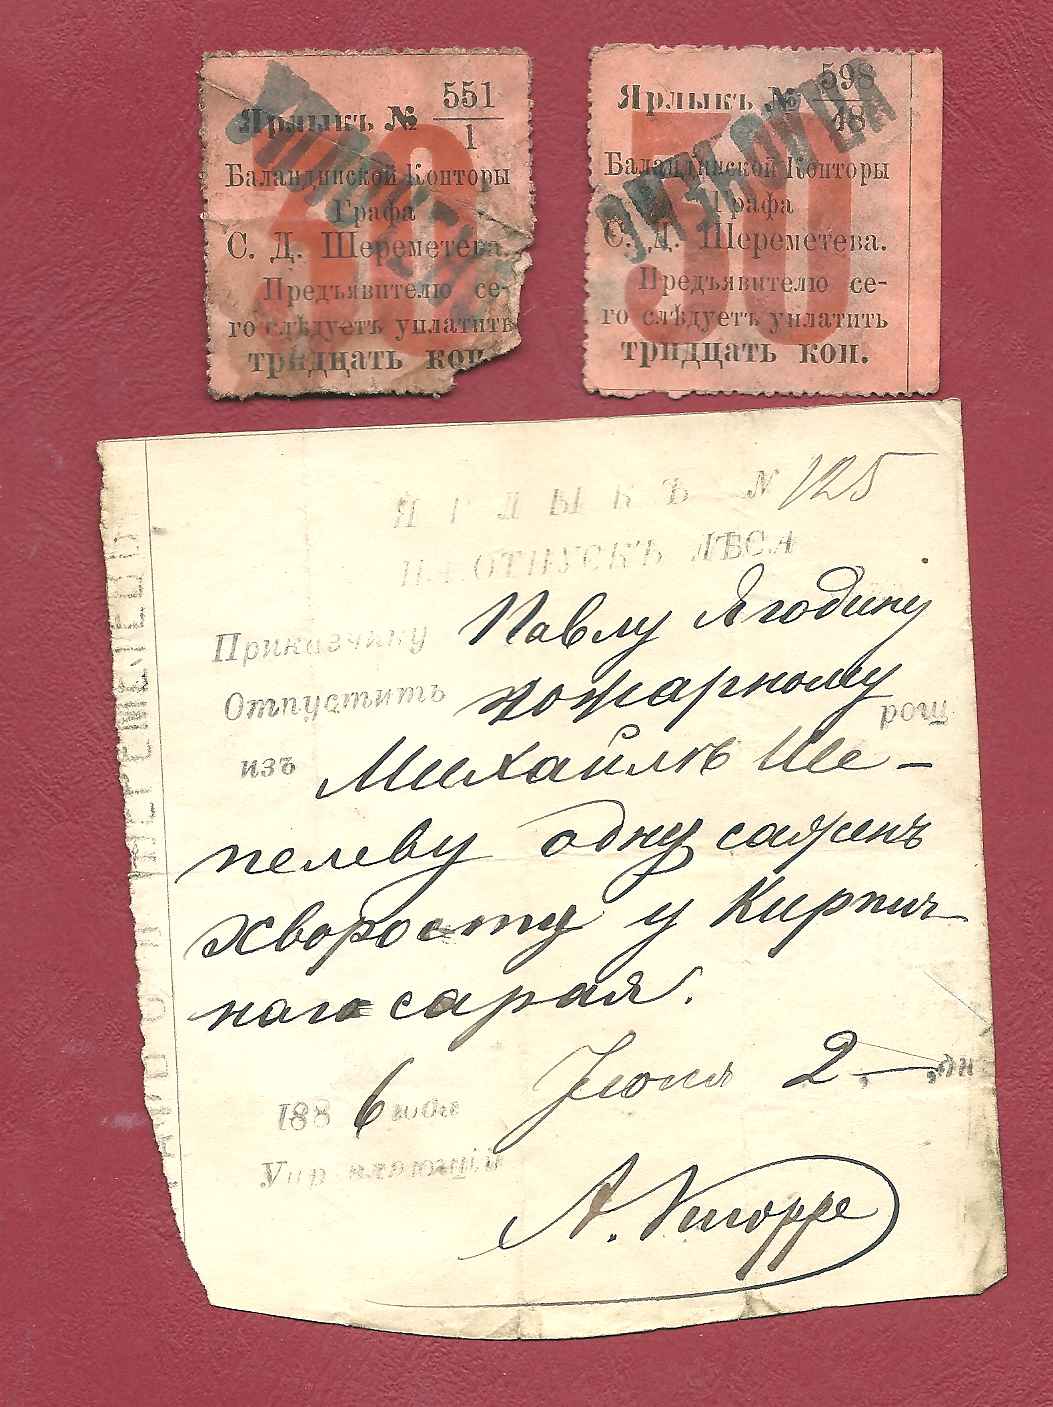 Ярлыкъ № 551
1
Баландинской Конторы
Графа
С. Д. Шереметева.
Предъявителю се-
го слѣдуетъ уплатить
тридцать коп.
30
Ярлыкъ № 598
18
Баландинской Конторы
Графа
С. Д. Шереметева.
Предъявителю се-
го слѣдуетъ уплатить
тридцать коп.
30
ЯРЛЫКЪ № 125
НА ОТПУСКЪ ЛѢСА
Приказчику Павлу Ягодину
Отпустить пожарному
изъ рощ
Михайлѣ Ше-
пелеву одну сажень
хворосту у Кирпич-
наго сарая.
1886 года Июня 2 дня
Управляющій
А. Кнорре